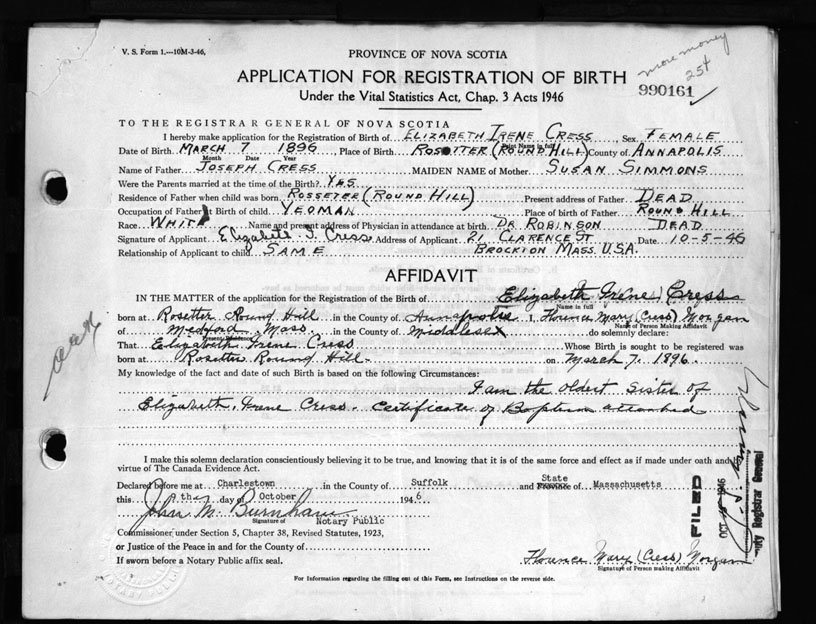 V. S. Form 1.—10M-3-46,
PROVINCE OF NOVA SCOTIA
more money
25¢
APPLICATION FOR REGISTRATION OF BIRTH
990161
Under the Vital Statistics Act, Chap. 3 Acts 1946
TO THE REGISTRAR GENERAL OF NOVA SCOTIA
I hereby make application for the Registration of Birth of ELIZABETH IRENE CRESS, Sex FEMALE
Print Name in full
Date of Birth MARCH 7 1896, Place of Birth ROSETTER (ROUND HILL) County of ANNAPOLIS
Month Date Year
Name of Father JOSEPH CRESS MAIDEN NAME of Mother SUSAN SIMMONS
Were the Parents married at the time of the Birth? YES
Residence of Father when child was born ROSSETER (ROUND HILL) Present address of Father DEAD
Occupation of Father at Birth of child YEOMAN Place of birth of Father ROUND HILL
Race WHITE Name and present address of Physician in attendance at birth DR ROBINSON DEAD
Signature of Applicant Elizabeth I. Cress Address of Applicant 21 CLARENCE ST Date 10-5-46
Relationship of Applicant to child SAME BROCKTON MASS. U.S.A.
AFFIDAVIT
IN THE MATTER of the application for the Registration of the Birth of Elizabeth Irene Cress
Name in full
born at Rosetter Round Hill in the County of Annapolis I, Florence Mary (Cress) Morgan
Name of Person Making Affidavit
of Medford, Mass. in the County of Middlesex do solemnly declare:
Present Residence
That Elizabeth Irene Cress Whose Birth is sought to be registered was
born at Rosetter Round Hill on March 7, 1896.
My knowledge of the fact and date of such Birth is based on the following Circumstances:
I am the oldest sister of
Elizabeth Irene Cress. Certificate of Baptism attached
I make this solemn declaration conscientiously believing it to be true, and knowing that it is of the same force and effect as if made under oath and by
virtue of The Canada Evidence Act.
Declared before me at Charlestown in the County of Suffolk and State Province of Massachusetts
this 9th day of October 1946
John M. Burnham
Signature of Notary Public
Commissioner under Section 5, Chapter 38, Revised Statutes, 1923,
or Justice of the Peace in and for the County of
If sworn before a Notary Public affix seal.
Florence Mary (Cress) Morgan
Signature of Person making Affidavit
For Information regarding the filling out of this Form, see Instructions on the reverse side.
FILED
OCT 1946
Registrar General